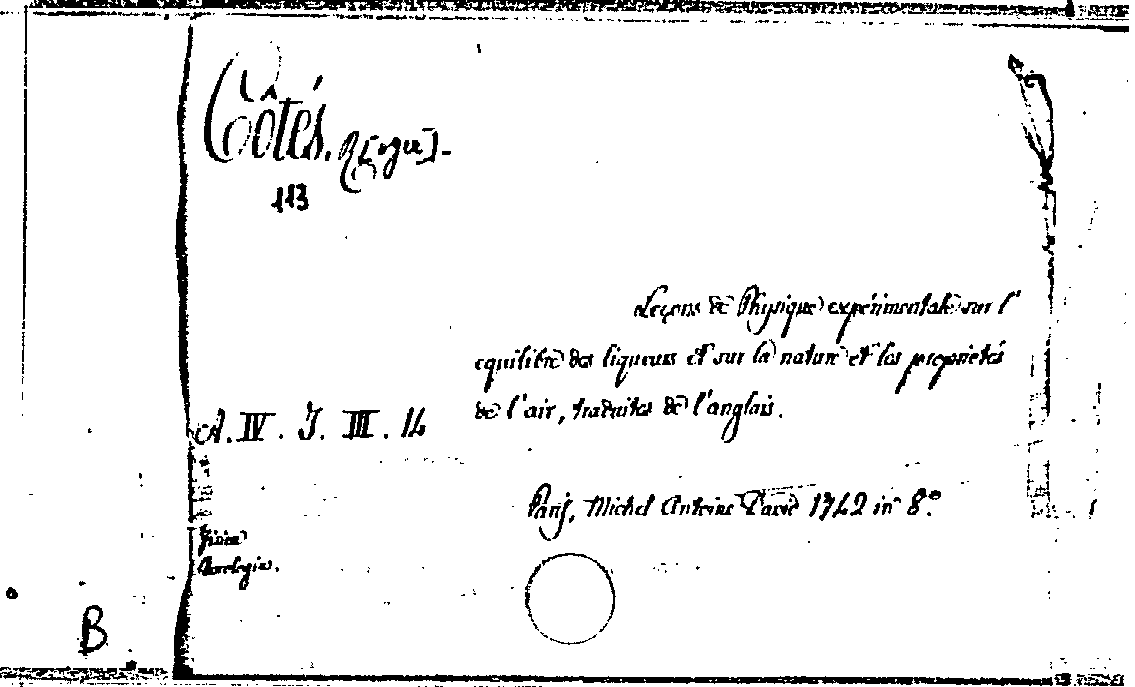 Côtés. R[oger].
113
Leçons de Physique expérimentale sur l'
equilibre des liqueurs et sur la nature et les proprietés
de l'air, traduites de l'anglais.
A. IV. J. III. 14
Paris, Michel Antoine David 1742 in 8º.
Fisica
B